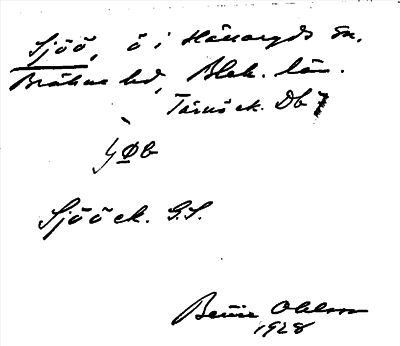 Sjöö, ö i Hällaryds sn.
Bräkne hd, Blek. län.
Tärnö ek. Db 7
Sjöö ek. G.S.
Bertil Ohlsson
1928